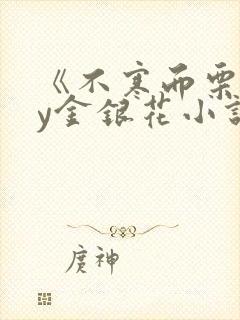 《不寒而栗
y金银花小说
庹神